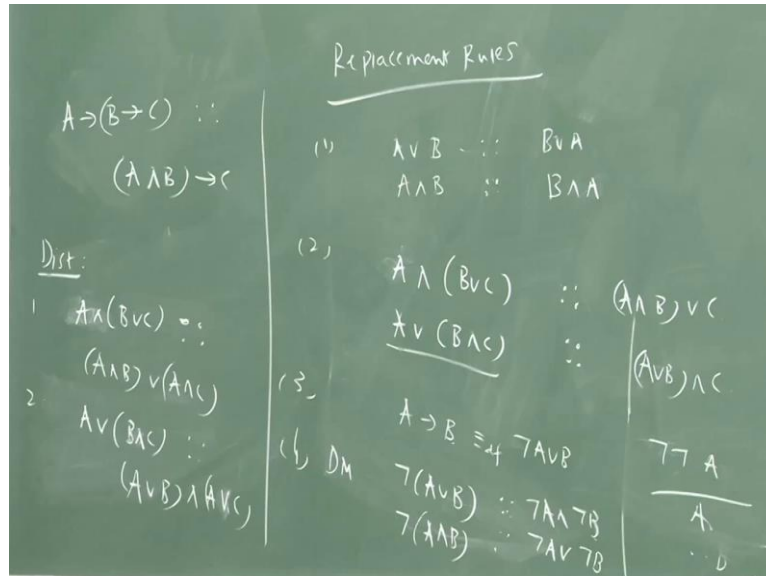 A → (B → C) ::
(A ∧ B) → C
Dist:
1 A ∧ (B ∨ C) ::
(A ∧ B) ∨ (A ∧ C)
2 A ∨ (B ∧ C) ::
(A ∨ B) ∧ (A ∨ C)
Replacement Rules
(1) A ∨ B :: B ∨ A
A ∧ B :: B ∧ A
(2) A ∧ (B ∨ C) :: (A ∧ B) ∨ C
A ∨ (B ∧ C) :: (A ∨ B) ∧ C
(3) A → B ≡df ¬A ∨ B
(4) DM ¬(A ∨ B) :: ¬A ∧ ¬B
¬(A ∧ B) :: ¬A ∨ ¬B
¬¬A
A